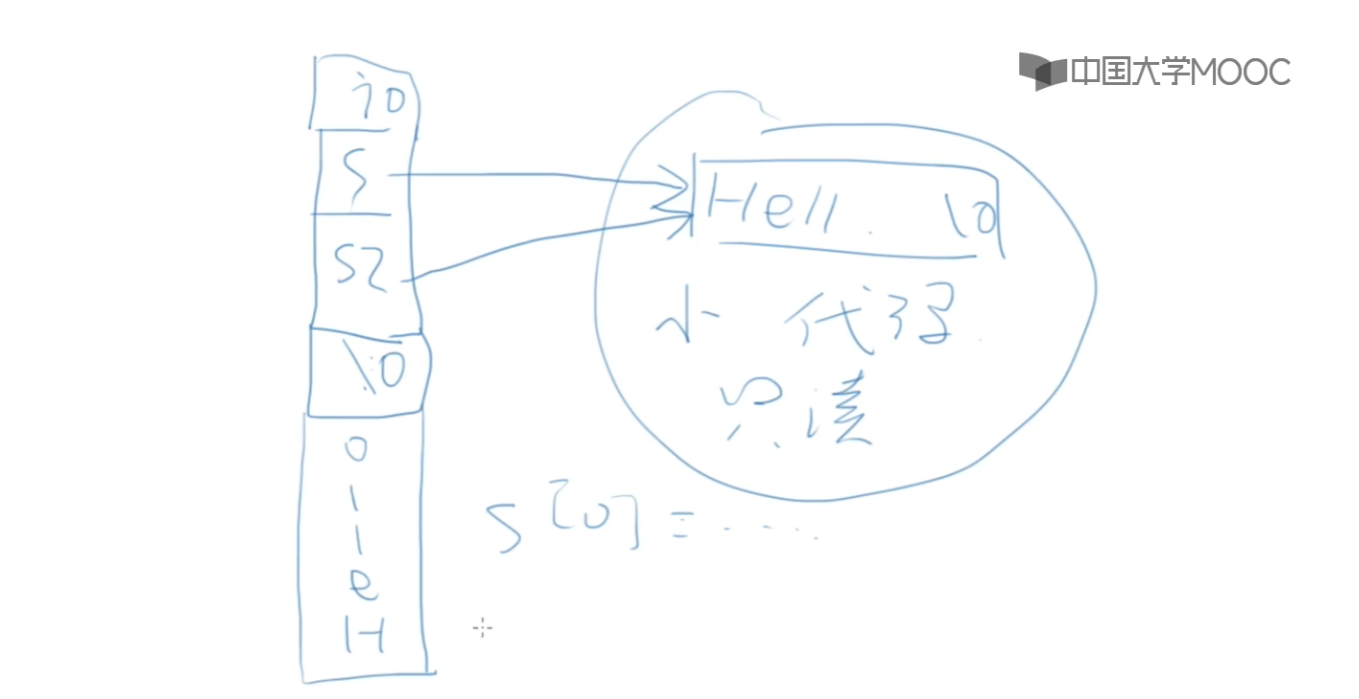 中国大学MOOC
i 0
s
s2
\0
o
l
l
e
H
Hell \0
小 代码
只读
s[0] = .....